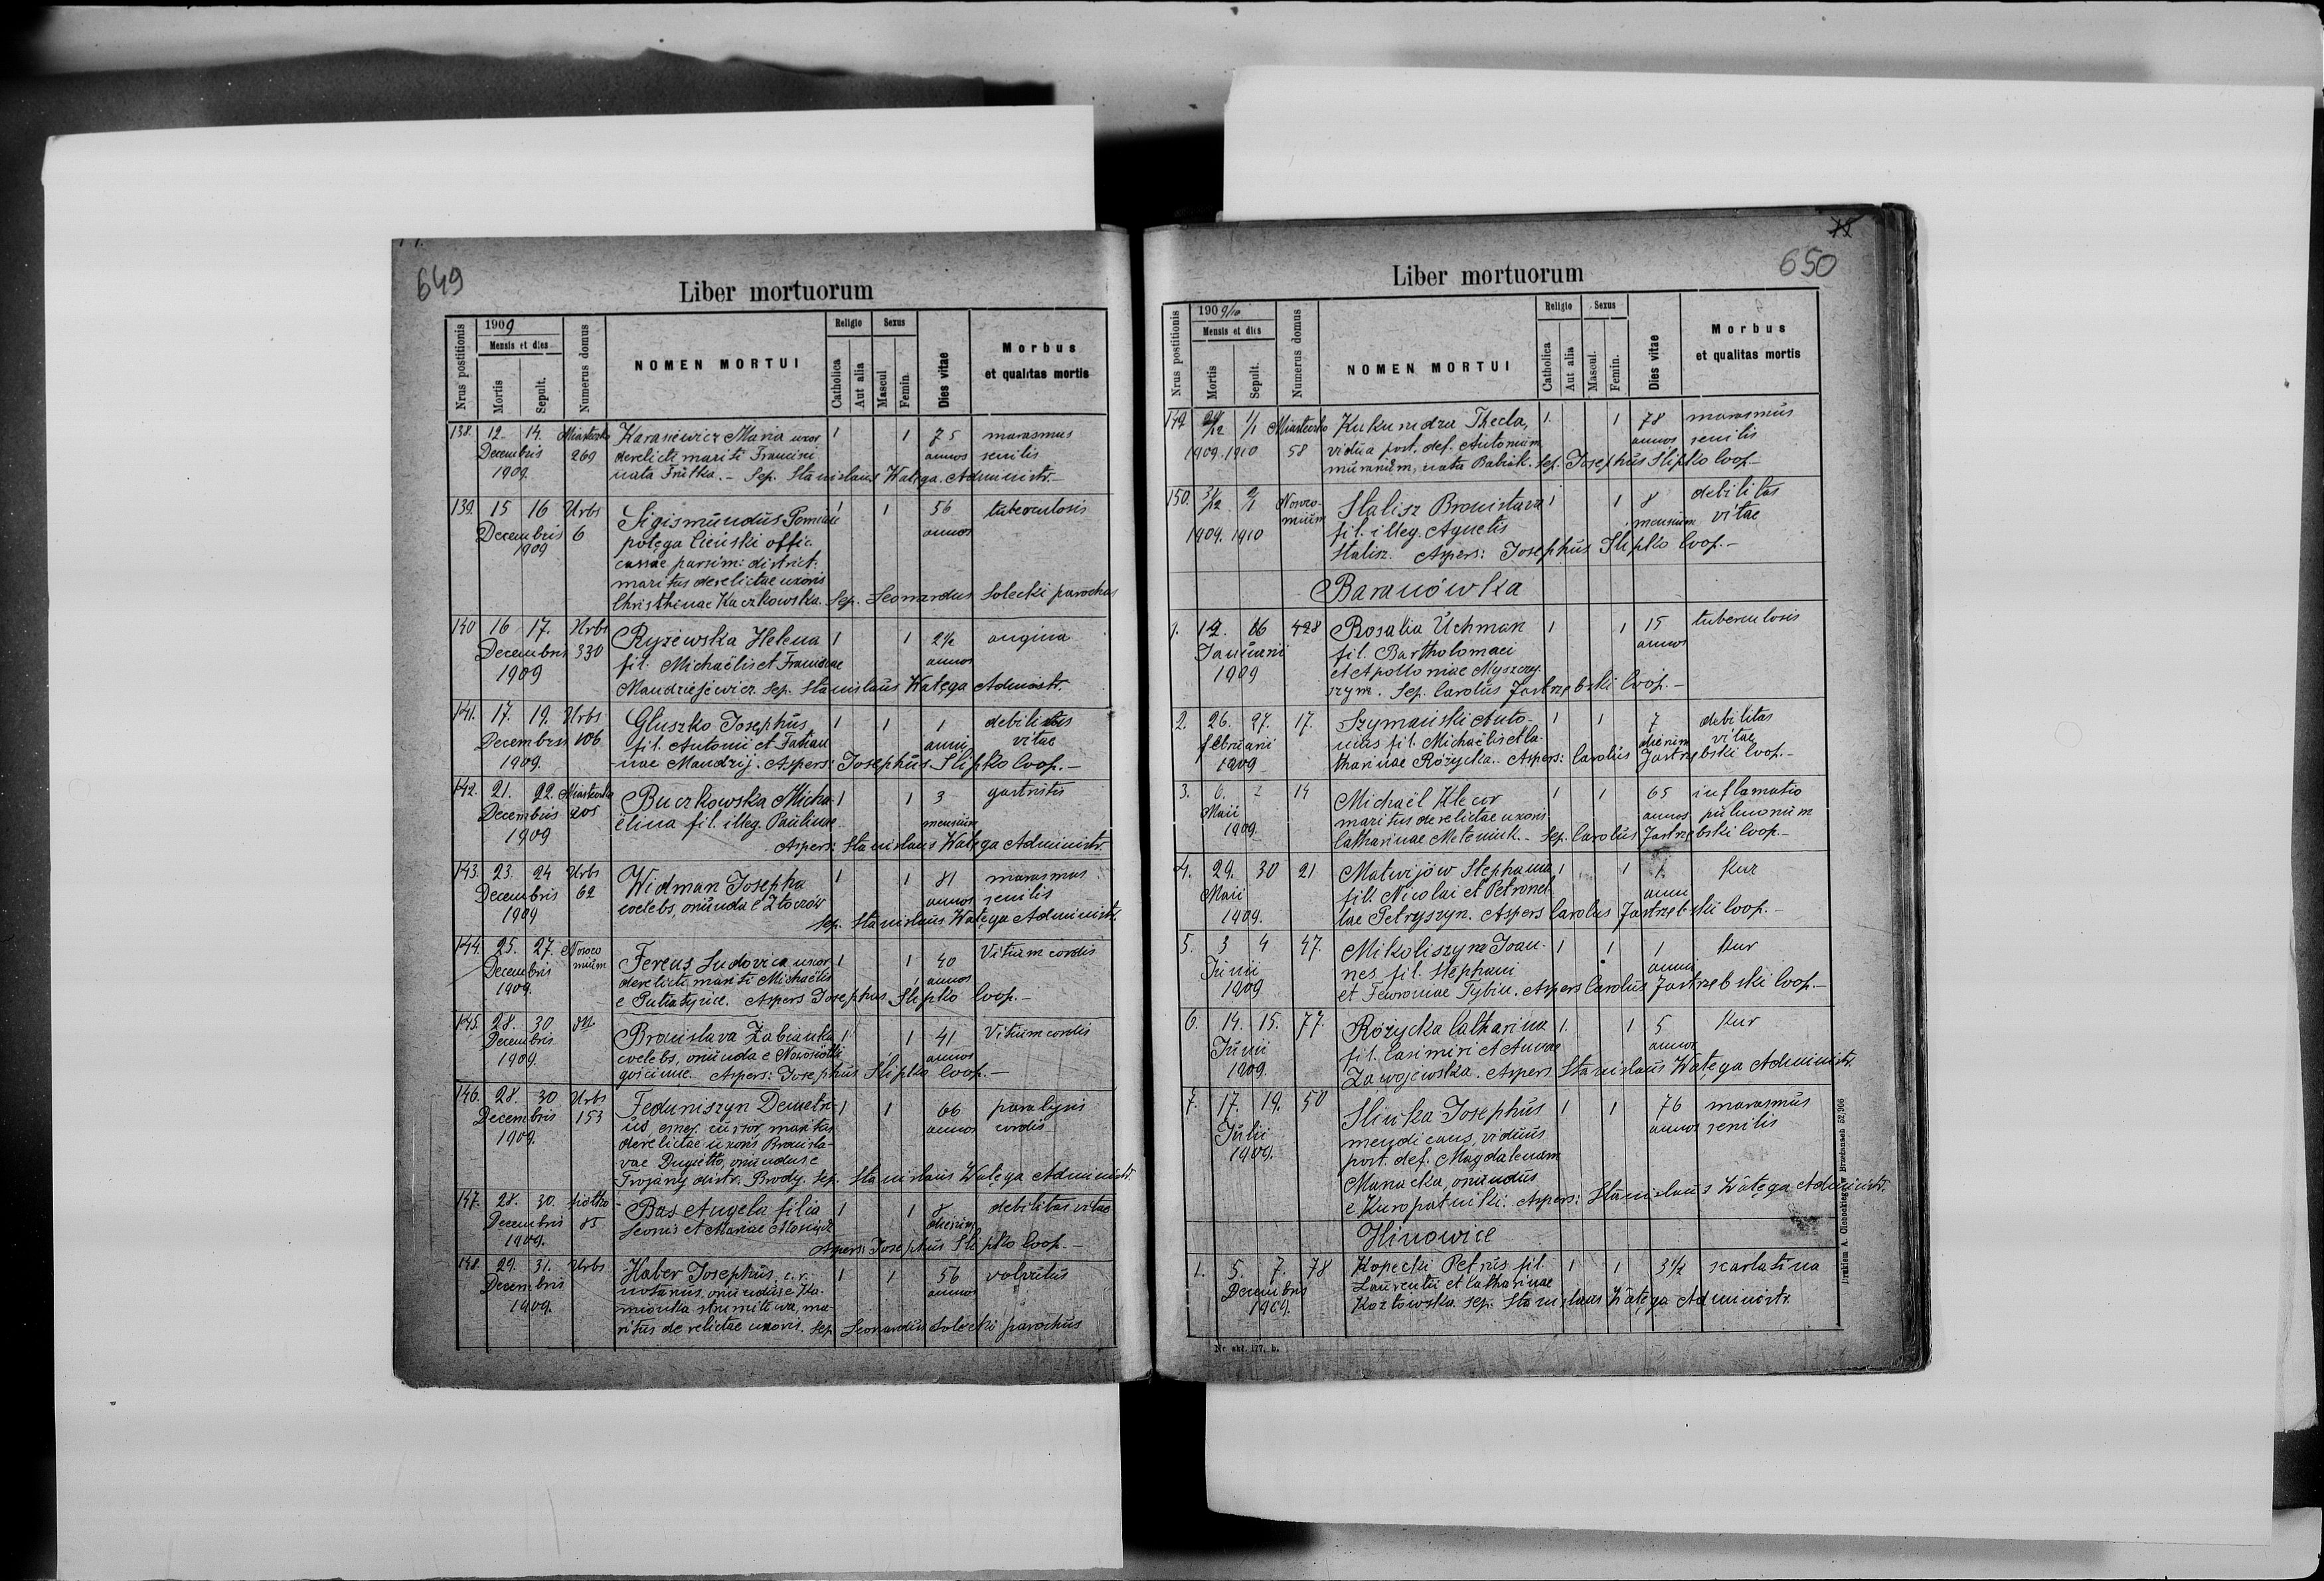 649
Liber mortuorum
Nrus postitionis
1909
Mensis et dies
Mortis
Sepult.
Numerus domus
NOMEN MORTUI
Religio
Catholica
Aut alia
Sexus
Mascul
Femin.
Dies vitae
Morbus
et qualitas mortis
138. 12. 14. Miasteczko Karasiewicz Maria uxor 1 1 75 marasmus
Decembris 269 derelicti mariti Francisci annos senilis
1909 nata Frülka. - Sep. Stanislaus Watęga. Administr. -
139. 15 16 Urbs Sigismündüs Pomian 1 1 56 tuberculosis
Decembris 6 potęga Cieński offic. annos
1909 cassae parsim: district:
maritus derelictae uxoris
Christhinae Kaczkowska. Sep. Leonardus Solecki parochus
140 16 17. Urbs Ryżewska Helena 1 1 2½ angina
Decembris 330 fil. Michaëlis et Franciscae annos
1909 Mandziejewicz. Sep. Stanislaüs Watęga Administr.
141. 17. 19. Urbs Głuszko Josephüs 1 1 1 debilitas
Decembris 106 fil. Antonii et Tatian anni vitae
1909. nae Mandzij. Aspers: Josephüs Slipko Coop. -
142. 21. 22. Miasteczko Buczkowska Micha- 1 1 3 gastritis
Decembris 205 ëlina fil. illeg. Paulinae mensium
1909 Aspers: Stanislaus Watęga Administr.
143. 23. 24 Urbs Widman Josepha 1 1 81 marasmus
Decembris 62 coelebs, oriünda e Złoczów annos senilis
1909 Sep. Stanislaüs Watęga Administr.
144. 25. 27. Nosoco Ferens Ludovica uxor 1 1 40 Vitium cordis
Decembris miüm derelicti mariti Michaëlis annos
1909. e Putiatynce. Aspers Josephus Slipko Coop. -
145. 28. 30. Bronislava Zabianka 1 1 41 Vitiüm cordis
Decembris coelebs, oriünda e Nowosiółki annos
1909. gościnne. Aspers: Josephüs Slipko Coop. -
146. 28. 30 Urbs Feduniszyn Demetri- 1 1 66 paralysis
Decembris 153 us emer. cürsor maritus annos cordis
1909. derelictae uxoris Bronisla-
vae Dugietto, oriünduse
Trojany distr. Brody. Sep. Stanislaüs Watęga Administr.
147. 28. 30. Bas Angela filia 1 1 8 debilitas vitae
Decembris 85 Leonis et Mariae dierüm
1909. Aspers: Josephüs Slipko Coop. -
148. 29. 31. Urbs Haber Josephüs, c.r. 1 1 56 volvülus
Decembris notariüs, oriünduse Ka- annos
1909. mionka strumiłowa, ma-
ritus derelictae uxoris. Sep. Leonardüs Solecki parochüs
650
Liber mortuorum
Nrus postitionis
1909/10
Mensis et dies
Mortis
Sepult.
Numerus domus
NOMEN MORTUI
Religio
Catholica
Aut alia
Sexus
Mascul.
Femin.
Dies vitae
Morbus
et qualitas mortis
149 1/1 Miasteczko Kukurudza Thecla, 1. 1 78 marasmüs
1909. 1910 58 vidüa post. def. Antonium annos senilis
nata Babiak. Sep. Josephüs Slipko Coop. -
150. 31/12 2/1 Nosoco- Stalisz Bronislava 1 1 8 debilitas
miüm fil. illeg. Agnetis mensium vitae
1909. 1910 Stalisz. Aspers: Josephüs Slipko Coop. -
Baranówka
1. 16 428 Rosalia Üchman 1 1 15 tuberculosis
Januarii fil. Bartholomaei annos
1909 et Apolloniae Myszczy-
szyn. Sep. Carolüs Jastrzębski Coop. -
2. 26. 27. 17. Szymański Anto- 1 1 7 debilitas
februarii niüs fil. Michaëlis et Ca- dierum vitae
1909 tharinae Różycka. Aspers: Carolüs Jastrzębski Coop. -
3. 6. 14 Michaël Klecor 1 1 65 inflamatio
Maii maritus derelictae uxoris annos pülmonüm
1909. Catharinae Meteniuk. - Sep. Carolüs Jastrzębski Coop. -
4. 29. 30 21 Matwijów Stephania 1 1 1 Kur
Maii fil. Nicolai et Petronel- anni
1909. lae Petryszyn. Aspers Carolus Jastrzębski Coop. -
5. 3 4 47. Mikoliszyn Joan- 1 1 1 Kur
Junii nes fil. Stephani anni
1909 et Fewroniae Tybin. Aspers Carolüs Jastrzębski Coop. -
6. 14. 15. 77. Różycka Catharina 1. 1 5 Kur
Jünii fil. Casimiri et Annae annos
1909. Zawojewska. Aspers Stanislaüs Watęga Administr.
7. 17. 19. 50 Sliwka Josephüs 1 1 76 marasmüs
Jülii mendicans, vidüüs annos senilis
1909. post. def. Magdalenam
Manacka, oriündüs
e Kuropatniki. Aspers: Stanislaüs Watęga Administr.
Hinowice
1. 5. 7. 78 Kopecki Petrüs fil. 1 1 3½ scarlatina
Decembris Laürentii et Catharinae
1909. Kozłowska. Sep. Stanislaus Watęga Administr.
Nr. skł. 177. b.
Drukiem A. Clebockiego w Brzeżanach 52,906